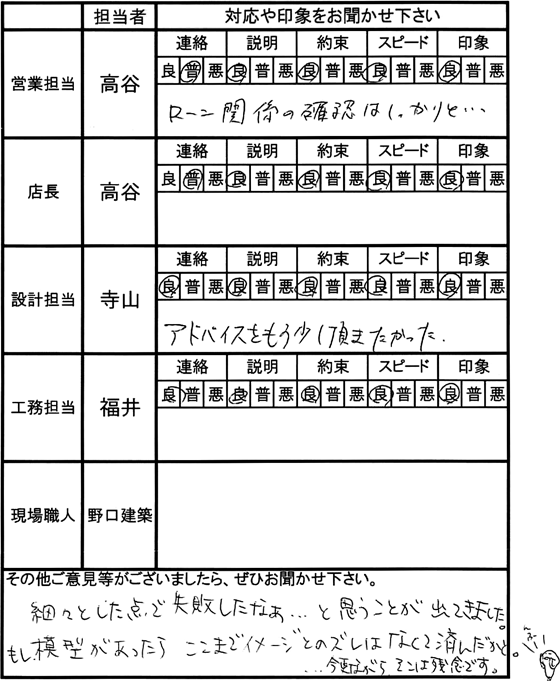 担当者 対応や印象をお聞かせ下さい
連絡 説明 約束 スピード 印象
営業担当 高谷 良 普 悪 良 普 悪 良 普 悪 良 普 悪 良 普 悪
ローン関係の確認はしっかりと…
連絡 説明 約束 スピード 印象
店長 高谷 良 普 悪 良 普 悪 良 普 悪 良 普 悪 良 普 悪
連絡 説明 約束 スピード 印象
設計担当 寺山 良 普 悪 良 普 悪 良 普 悪 良 普 悪 良 普 悪
アドバイスをもう少し頂きたかった.
連絡 説明 約束 スピード 印象
工務担当 福井 良 普 悪 良 普 悪 良 普 悪 良 普 悪 良 普 悪
現場職人 野口建築
その他ご意見等がございましたら、ぜひお聞かせ下さい。
細々とした点で失敗したなぁ…と思うことが出てきました。
もし、模型があったらここまでイメージとのズレはなくて済んだかと。
…今更ながらそこは残念です。